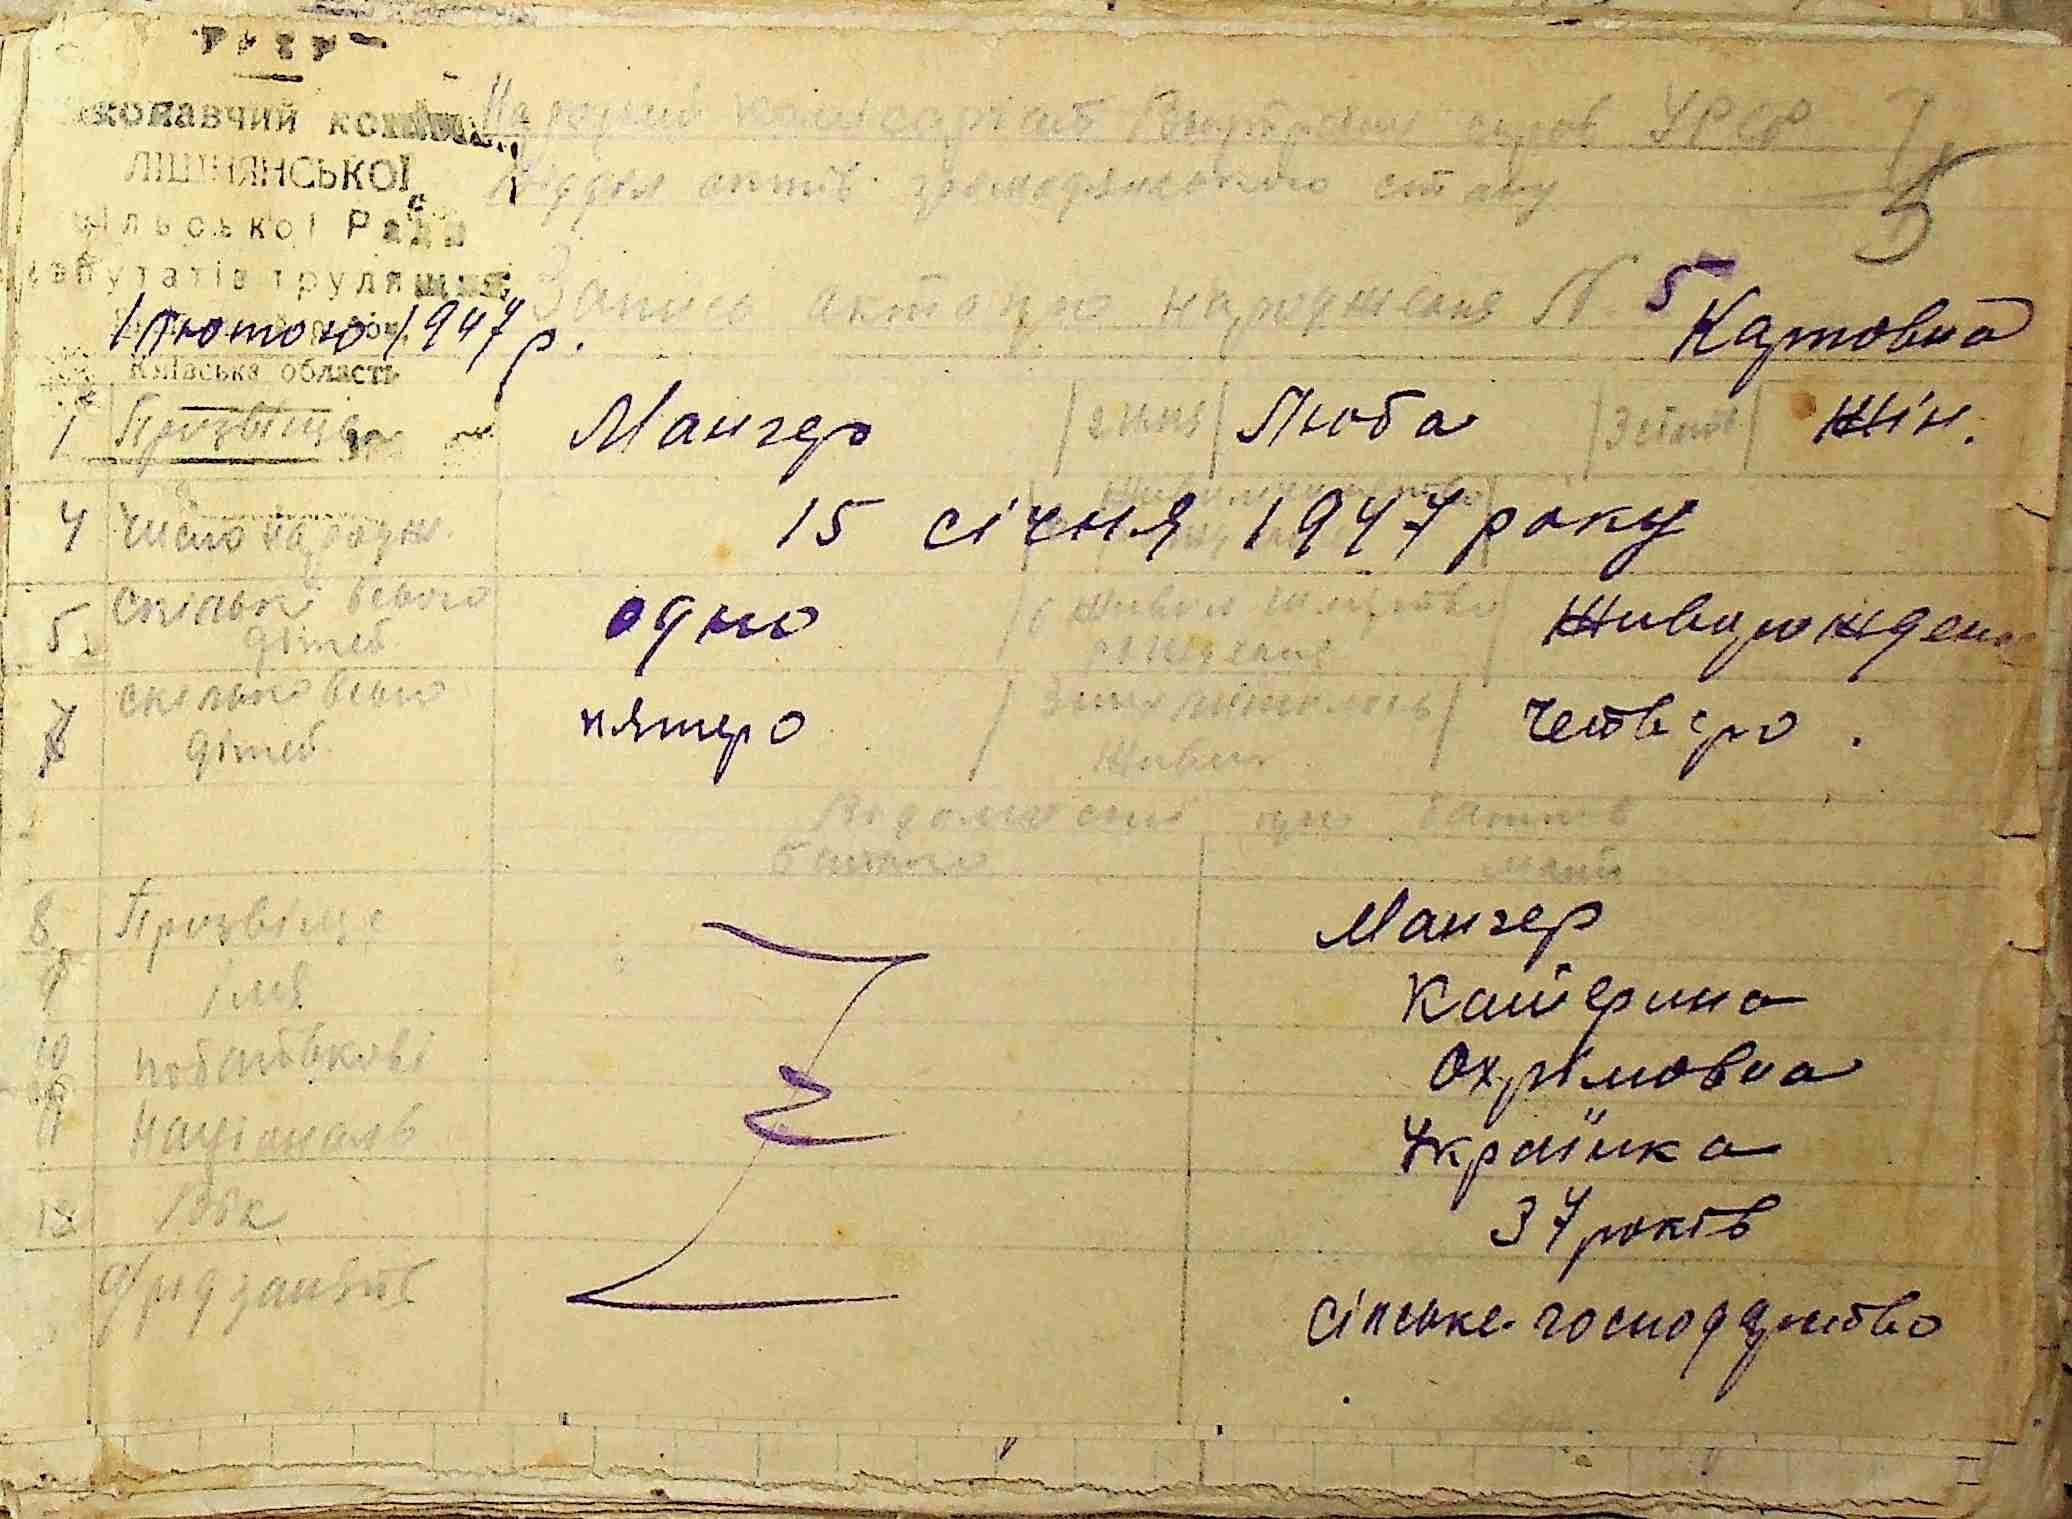 УРСР
виконавчий комітет
ЛІШНЯНСЬКОЇ
сільської Ради
депутатів трудящих
Київська область
Народний комісаріат Внутрішн справ УРСР
Відділ актів громадянського стану
5
Запись акта про народження № 5
1 лютого 1947 р.
Карповна
1 Прозвіще Мангер 2 імя Люба 3 стать жін.
4 число народж. 15 січня 1947 року
5 скільки всього дітей одно 6 живим чи мертво рождення живорождено
7 скілько всього дітей пятеро З них лишилось живих четверо.
Відомості про батьків
батько мати
8 Прозвіще Мангер
9 імя Катерина
10 побатькові Охрімовна
11 Національ Українка
12 Вік 37 років
сільське-господарство